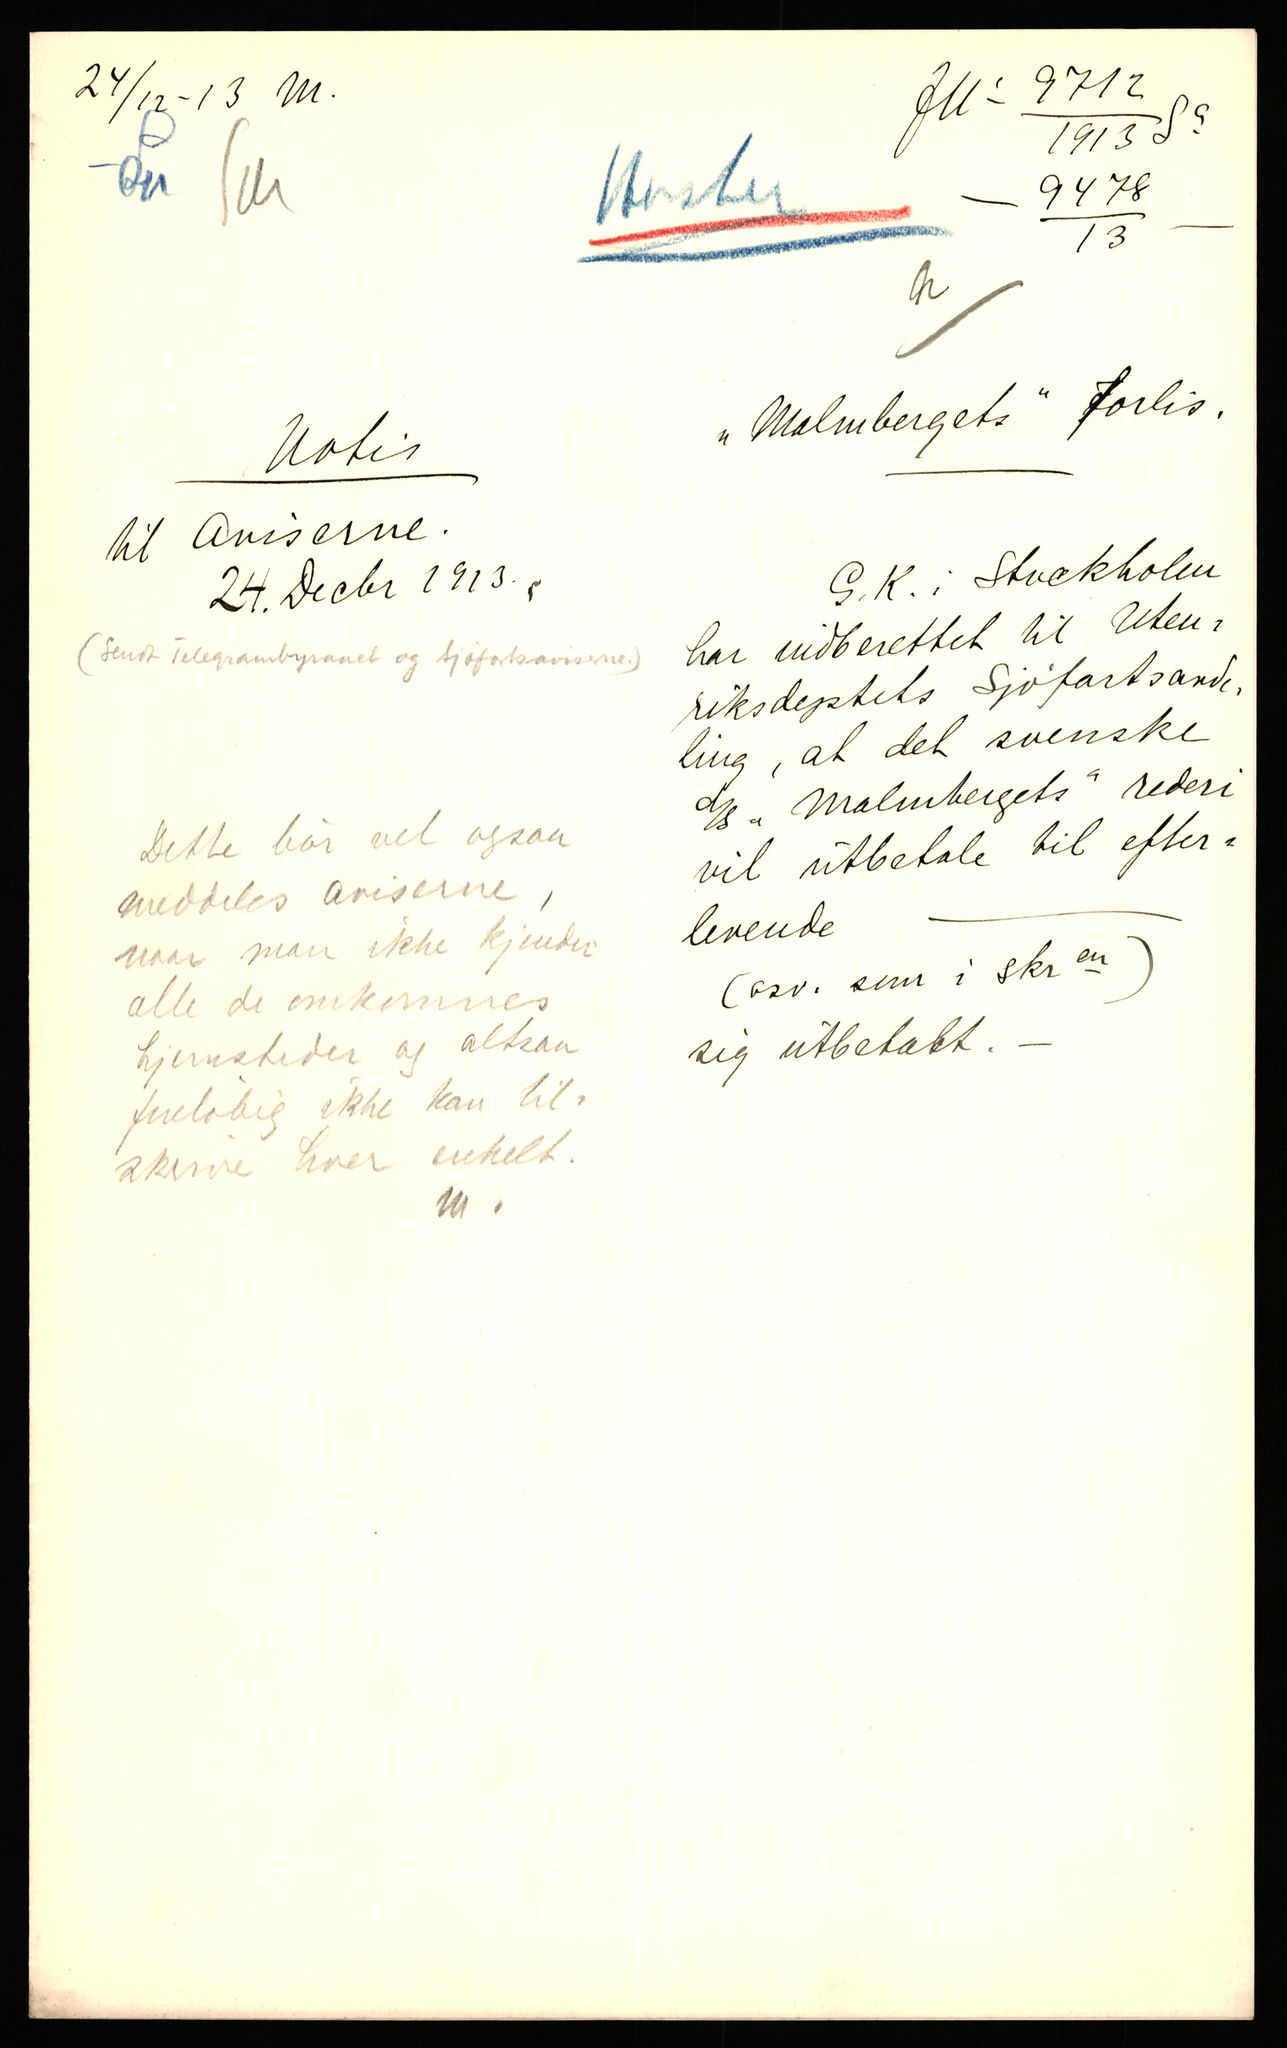 24/12-13 M.
JNr 9712
1913 Sa
9478
13
Haster
Notis
til Aviserne.
24. Decbr 1913.
(Sendt Telegrambyraaet og Sjøfartsaviserne.)
Dette bör vel ogsaa
meddeles aviserne,
naar man ikke kjender
alle de omkomnes
hjemsteder og altsaa
foreløbig ikke kan til-
skrive hver enkelt.
M.
"Malmbergets" Forlis.
G.K. i Stockholm
har indberettet til Uten-
riksdeptets Sjöfartsavde-
ling, at det svenske
d/s "Malmbergets" rederi
vil utbetale til efter-
levende
(osv. som i skr en)
sig utbetalt. —